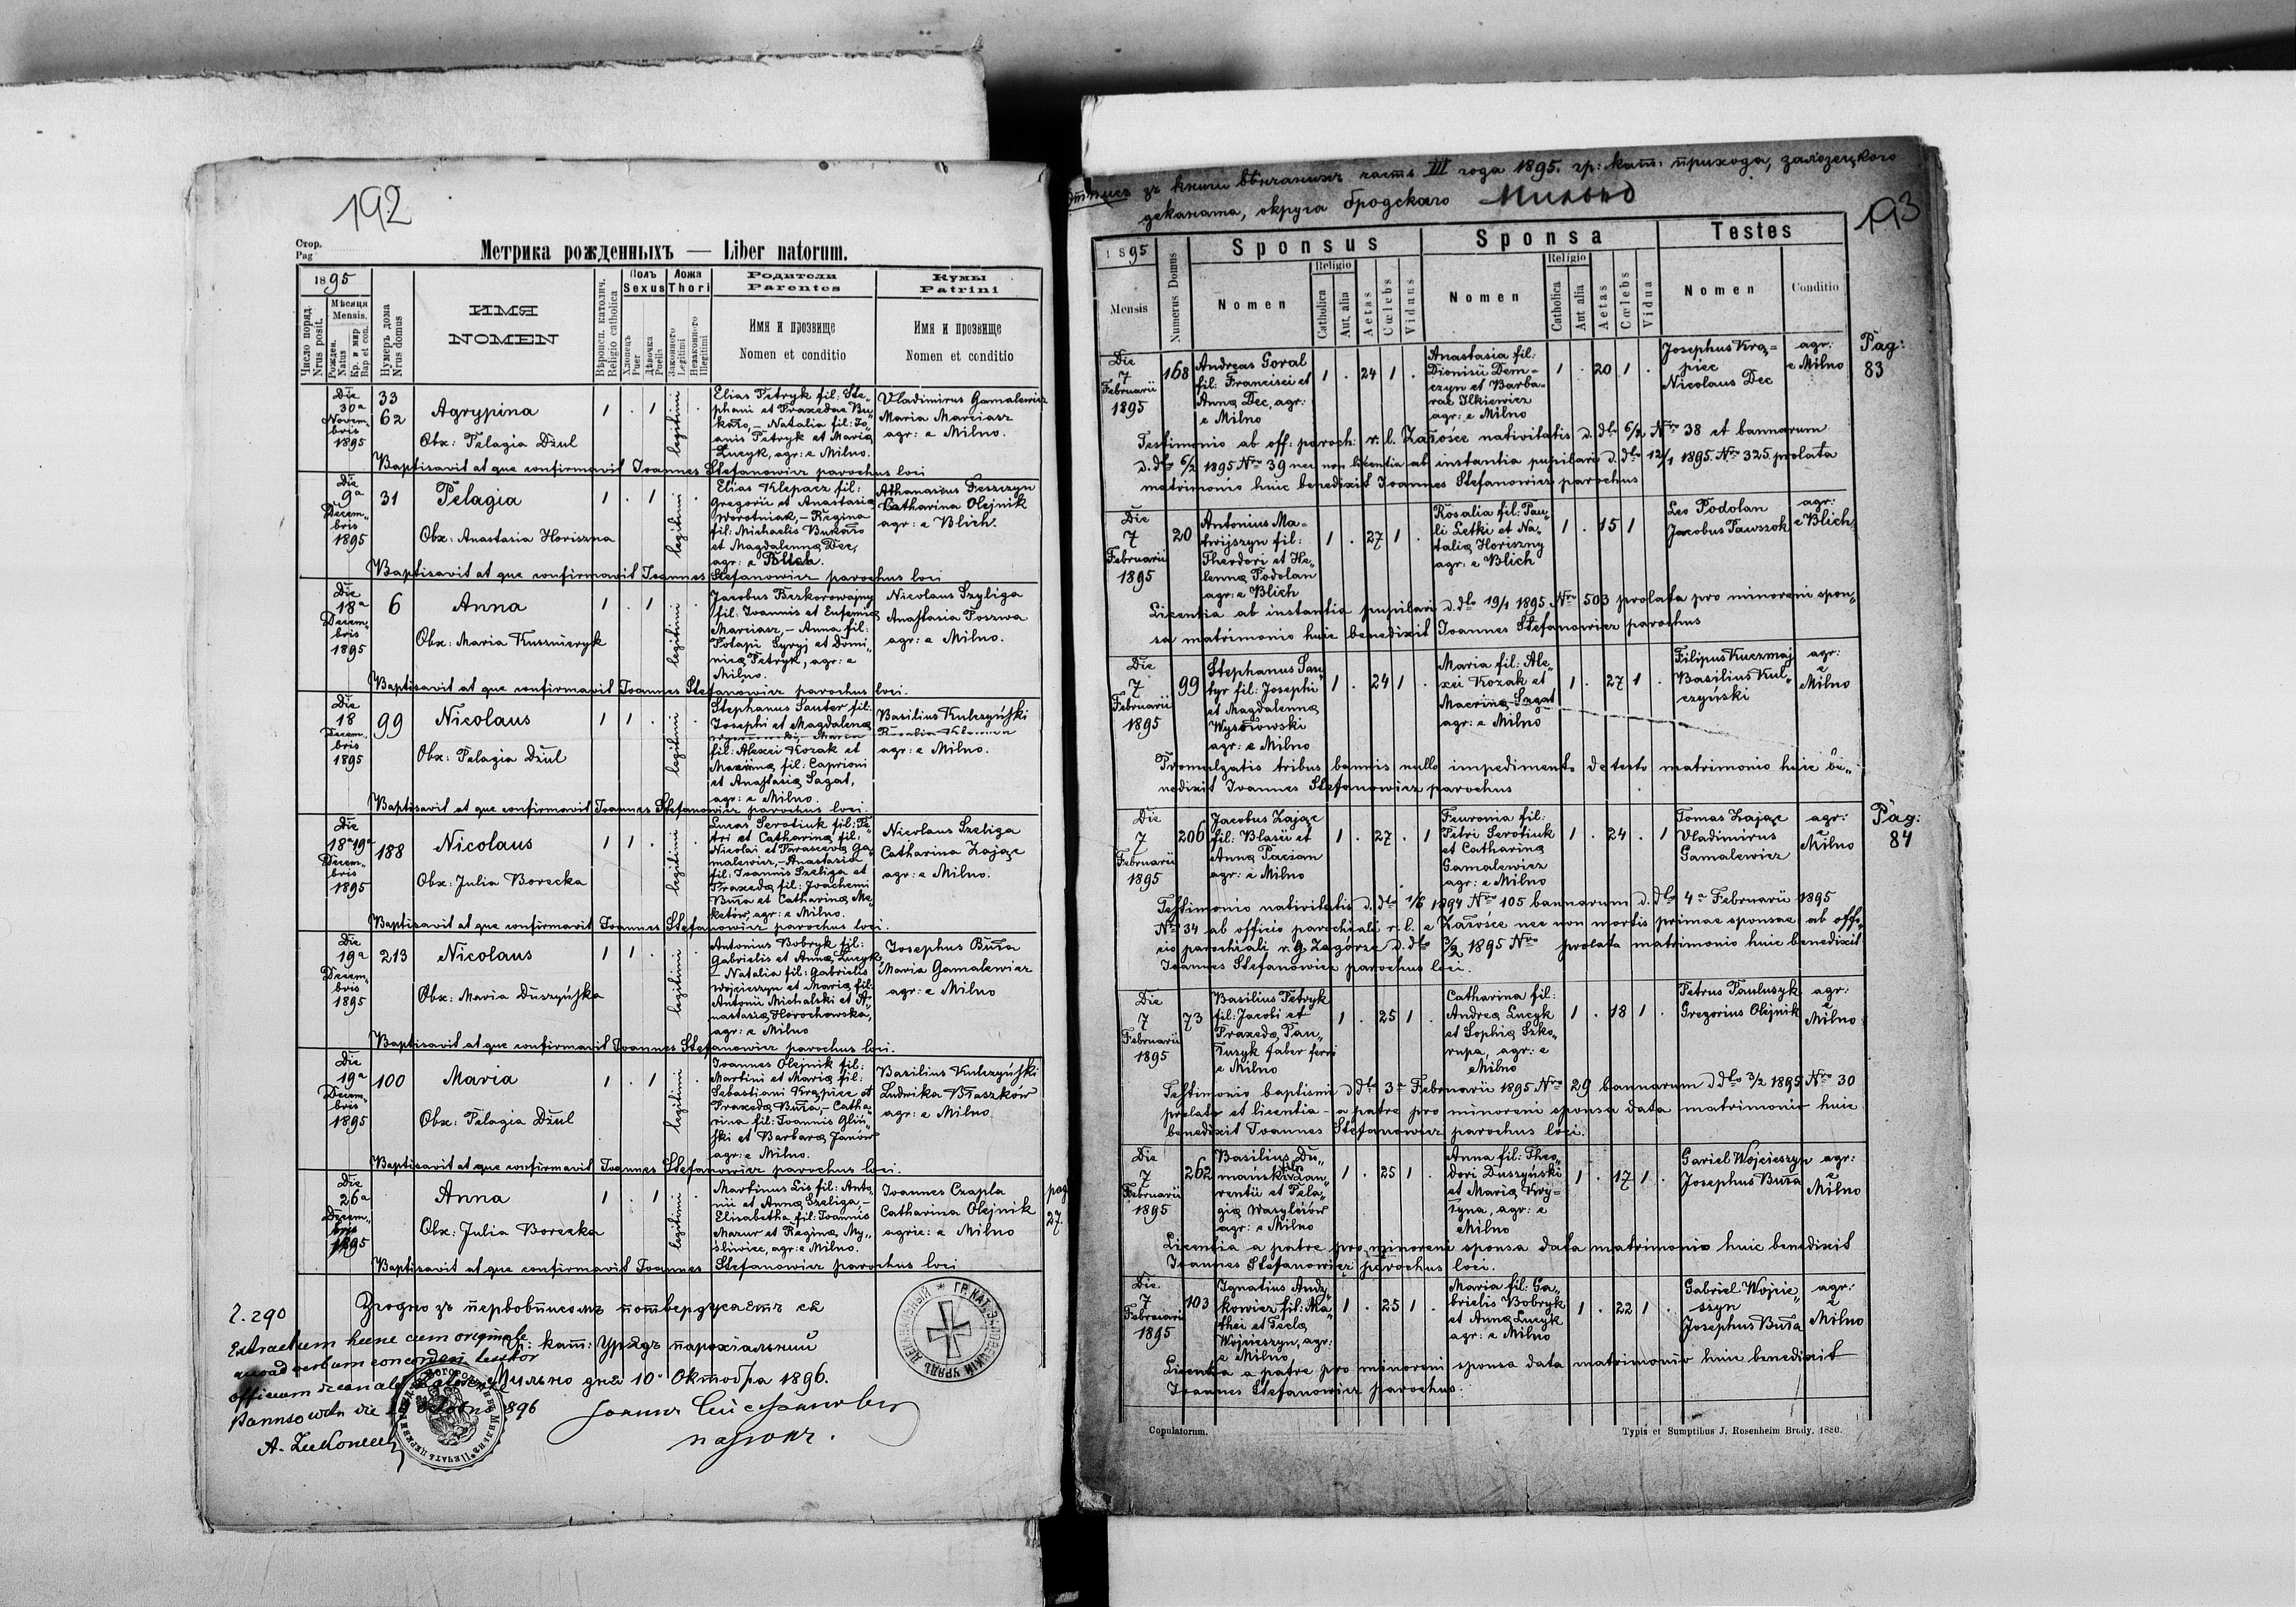 192
Стор.
Pag
Метрика рожденныхъ — Liber natorum.
1895
Число поряд.
Nrus posit.
Мѣсяця
Mensis.
Рожден.
Natus
Кр. и мѵр
Bap et con.
Нумеръ дома
Nrus domus
ИМЯ
NOMEN
Вѣроисп. католич.
Religio catholica
Полъ
Sexus
Хлопецъ
Puer
Дѣвочка
Puella
Ложа
Thori
Законного
Legitimi
Незаконного
Illegitimi
Родители
Parentes
Имя и прозвище
Nomen et conditio
Кумы
Patrini
Имя и прозвище
Nomen et conditio
Die
30ª
Novem„
bris
1895
33
62
Agrypina
Obx: Pelagia Dżul
1 . 1 .
legitimi
Elias Petryk fil: Ste„
phani et Praxedae Bu„
kało, – Natalia fil: Jo„
anis Petryk et Maria
Łucyk, agr: e Milno.
Vladimirus Gamalewicz
Maria Marciasz
agr: e Milno.
Baptisavit at que confirmavit Joannes Stefanowicz parochus loci
Die
9ª
Decem„
bris
1895
31
Pelagia
Obx: Anastasia Horiszna
1 . 1 .
legitimi
Elias Klepacz fil:
Gregorii et Anastasia
Worotniak, – Regina
fil: Michaelis Bukało
et Magdalenna Dec,
agr: e Blich.
Athanasius Feszczyn
Catharina Olejnik
agr: e Blich.
Baptisavit at que confirmavit Joannes Stefanowicz parochus loci
Die
18ª
Decem„
bris
1895
6
Anna
Obx: Maria Kusznieryk
1 . 1 .
legitimi
Jacobus Bezkorowajny
fil: Joannis et Eufemia
Marciasz, – Anna fil:
Potapi Syryj et Domi„
nica Petryk, agr: e
Milno.
Nicolaus Szyliga
Anastasia Poszwa
agr: e Milno.
Baptisavit at que confirmavit Joannes Stefanowicz parochus loci.
Die
18
Decem„
bris
1895
99
Nicolaus
Obx: Pelagia Dżul
1 1 . .
legitimi
Stephanus Sauter fil:
Josephi et Magdalena
fil: Alexei Kozak et
Macrina fil: Caprioni
et Anastasia Sagat,
agr: e Milno.
Basilius Kulczyński
agr: e Milno.
Baptisavit at que confirmavit Joannes Stefanowicz parochus loci.
Die
18ª19ª
Decem„
bris
1895
188
Nicolaus
Obx: Julia Borecka
1 1 .
legitimi
Lucas Serotiuk fil: Pe„
tri et Catharina fil:
Nicolai et Parasceva Ga„
malewicz, – Anastasia
fil: Joannis Szeliga et
Praxeda fil: Joachemi
Buła et Catharina Me„
ketów, agr: e Milno.
Nicolaus Szeliga
Catharina Zając
agr: e Milno.
Baptisavit at que confirmavit Joannes Stefanowicz parochus loci.
Die
19ª
Decem„
bris
1895
213
Nicolaus
Obx: Maria Duszyńska
1 1 .
legitimi
Antonius Bobryk fil:
Gabrielis et Anna Łucyk,
– Natalia fil: Gabrielis
Wojcieszyn et Maria fil:
Antonii Michalski et A„
nastasia Horochowska,
agr: e Milno
Josephus Buła
Maria Gamalewicz
agr: e Milno
Baptisavit at que confirmavit Joannes Stefanowicz parochus loci.
Die
19ª
Decem„
bris
1895
100
Maria
Obx: Pelagia Dżul
1 . 1 .
legitimi
Joannes Olejnik fil:
Martini et Maria fil:
Sebastiani Krąpiec et
Praxeda Buła, – Catha„
rina fil: Joannis Gliń„
ski et Barbara Janów
agr: e Milno.
Basilius Kulczyński
Ludwika Błaszków
agr: e Milno
Baptisavit at que confirmavit Joannes Stefanowicz parochus loci.
Die
26ª
Decem„
bris
1895
Anna
Obx: Julia Borecka
1 . 1 .
legitimi
Martinus Lis fil: Anto„
nii et Anna Szeliga, –
Elisabetha fil: Joannis
Mazur et Regina My„
śliwiec, agr: e Milno.
Joannes Czapla
Catharina Olejnik
agric: e Milno
pag
27.
Baptisavit at que confirmavit Joannes Stefanowicz parochus loci
Згодно зъ первовписомъ потверджаетъ ся
гр: кат: Урядъ парохіяльный
Мильно дня 10 Октобра 1896.
Ł. 290
Extractum hunc cum originale
quoad verbum concordari testor
officium decanale
die 1896
парохъ.
193
Отпись зъ книги вѣнчаныхъ часть III года 1895. гр: кат: прихода, заложецкого
деканата, округа бродского Мильно
1895
Mensis
Numerus Domus
Sponsus
Nomen
Religio
Catholica
Aut. alia
Aetas
Cœlebs
Viduus
Sponsa
Nomen
Religio
Catholica
Aut alia
Aetas
Cœlebs
Vidua
Testes
Nomen
Conditio
Pag:
83
Die
7
Februarii
1895
168
Andreas Goral
fil: Francisci et
Anna Dec, agr:
e Milno
1 . 24 1 .
Anastasia fil:
Dionisii Dem–
czyn et Barba–
rae Ilkiewicz
agr: e Milno
1 . 20 1 .
Josephus Krą–
piec
Nicolaus Dec
agr:
e Milno
Testimonio ab off: paroch: r. l. Załośce nativitatis d. dto 6/2 Nro 38 et bannorum
d. dto 6/2 1895 Nro 39 nec non licentia ab instantia pupilari d. dto 12/1 1895. Nro 325 prolata
matrimonio huic benedixit Joannes Stefanowicz parochus
Die
7
Februarii
1895
20
Antonius Ma–
twijszyn fil:
Theodori et He„
lenna Podolan
agr: e Blich
1 . 27 1 .
Rosalia fil: Pau„
li Letki et Na„
talia Horiszny
agr: e Blich
1 . 15 1
Leo Podolan
Jacobus Pawszok
agr:
e Blich
Licentia ab instantia pupilari d. dto 19/1 1895 Nro 503 prolata pro minoreni spon„
sa matrimonio huic benedixit Joannes Stefanowicz parochus
Die
7
Februarii
1895
99
Stephanus Sau„
tyr fil: Josephi
et Magdalenna
Wysołowski
agr: e Milno
1 . 24 1 .
Maria fil: Ale„
xei Kozak et
Macrina Sagat
agr: e Milno
1 . 27 1 .
Filipus Kuczmaj
Basilius Kul„
czyński
agr:
e
Milno
Promulgatis tribus bannis nullo impedimento detecto matrimonio huic be„
nedixit Joannes Stefanowicz parochus
Pag:
84
Die
7
Februarii
1895
206
Jacobus Zając
fil: Blasii et
Anna Paczan
agr: e Milno
1 . 27 . 1
Fewronia fil:
Petri Serotiuk
et Catharina
Gamalewicz
agr: e Milno
1 . 24 . 1
Tomas Zając
Vladimirus
Gamalewicz
agr:
e
Milno
Testimonio nativitatis d. dto 1/8 1894 Nro 105 bannarum d. dto 4ª Februarii 1895
Nro 34 ab officio parochiali r. l. e Załośce nec non mortis primae sponsae ab offi„
cio parochiali r. g. Zagórze d. dto 3/2 1895 Nro prolata matrimonio huic benedixit
Joannes Stefanowicz parochus loci.
Die
7
Februarii
1895
73
Basilius Petryk
fil: Jacobi et
Praxeda Pau„
lusyk faber ferri
e Milno
1 . 25 1 .
Catharina fil:
Andrea Łucyk
et Sophia Szko–
rupa, agr: e
Milno
1 . 18 1 .
Petrus Pauluszyk
Gregorius Olejnik
agr:
e
Milno
Testimonio baptismi d dto 3ª Februarii 1895 Nro 29 bannarum d dto 3/2 1895 Nro 30
prolato et licentia – a patre pro minoreni sponsa data matrimonio huic
benedixit Joannes Stefanowicz parochus loci.
Die
7
Februarii
1895
262
Basilius Du„
mański Lau„
rentii et Pela„
gia Wasylciów
agr: e Milno
1 . 25 1 .
Anna fil: Theo„
dori Duszyński
et Maria Kry–
tyna, agr: e
Milno
1 . 17 1 .
Gariel Wojcieszyn
Josephus Buła
agr:
e
Milno
Licentia a patre pro minoreni sponsa data matrimonio huic benedixit
Joannes Stefanowicz parochus loci.
Die
7
Februarii
1895
103
Ignatius Andy„
kowicz fil: Ma„
thei et Tecla
Wojcieszyn, agr:
e Milno
1 . 25 1 .
Maria fil: Ga„
brielis Bobryk
et Anna Łucyk
agr: e Milno
1 . 22 1 .
Gabriel Wojcie„
szyn
Josephus Buła
agr:
e
Milno
Licentia a patre pro minoreni sponsa data matrimonio huic benedixit
Joannes Stefanowicz parochus.
Copulatorum.
Typis et Sumptibus J. Rosenheim Brody. 1880.